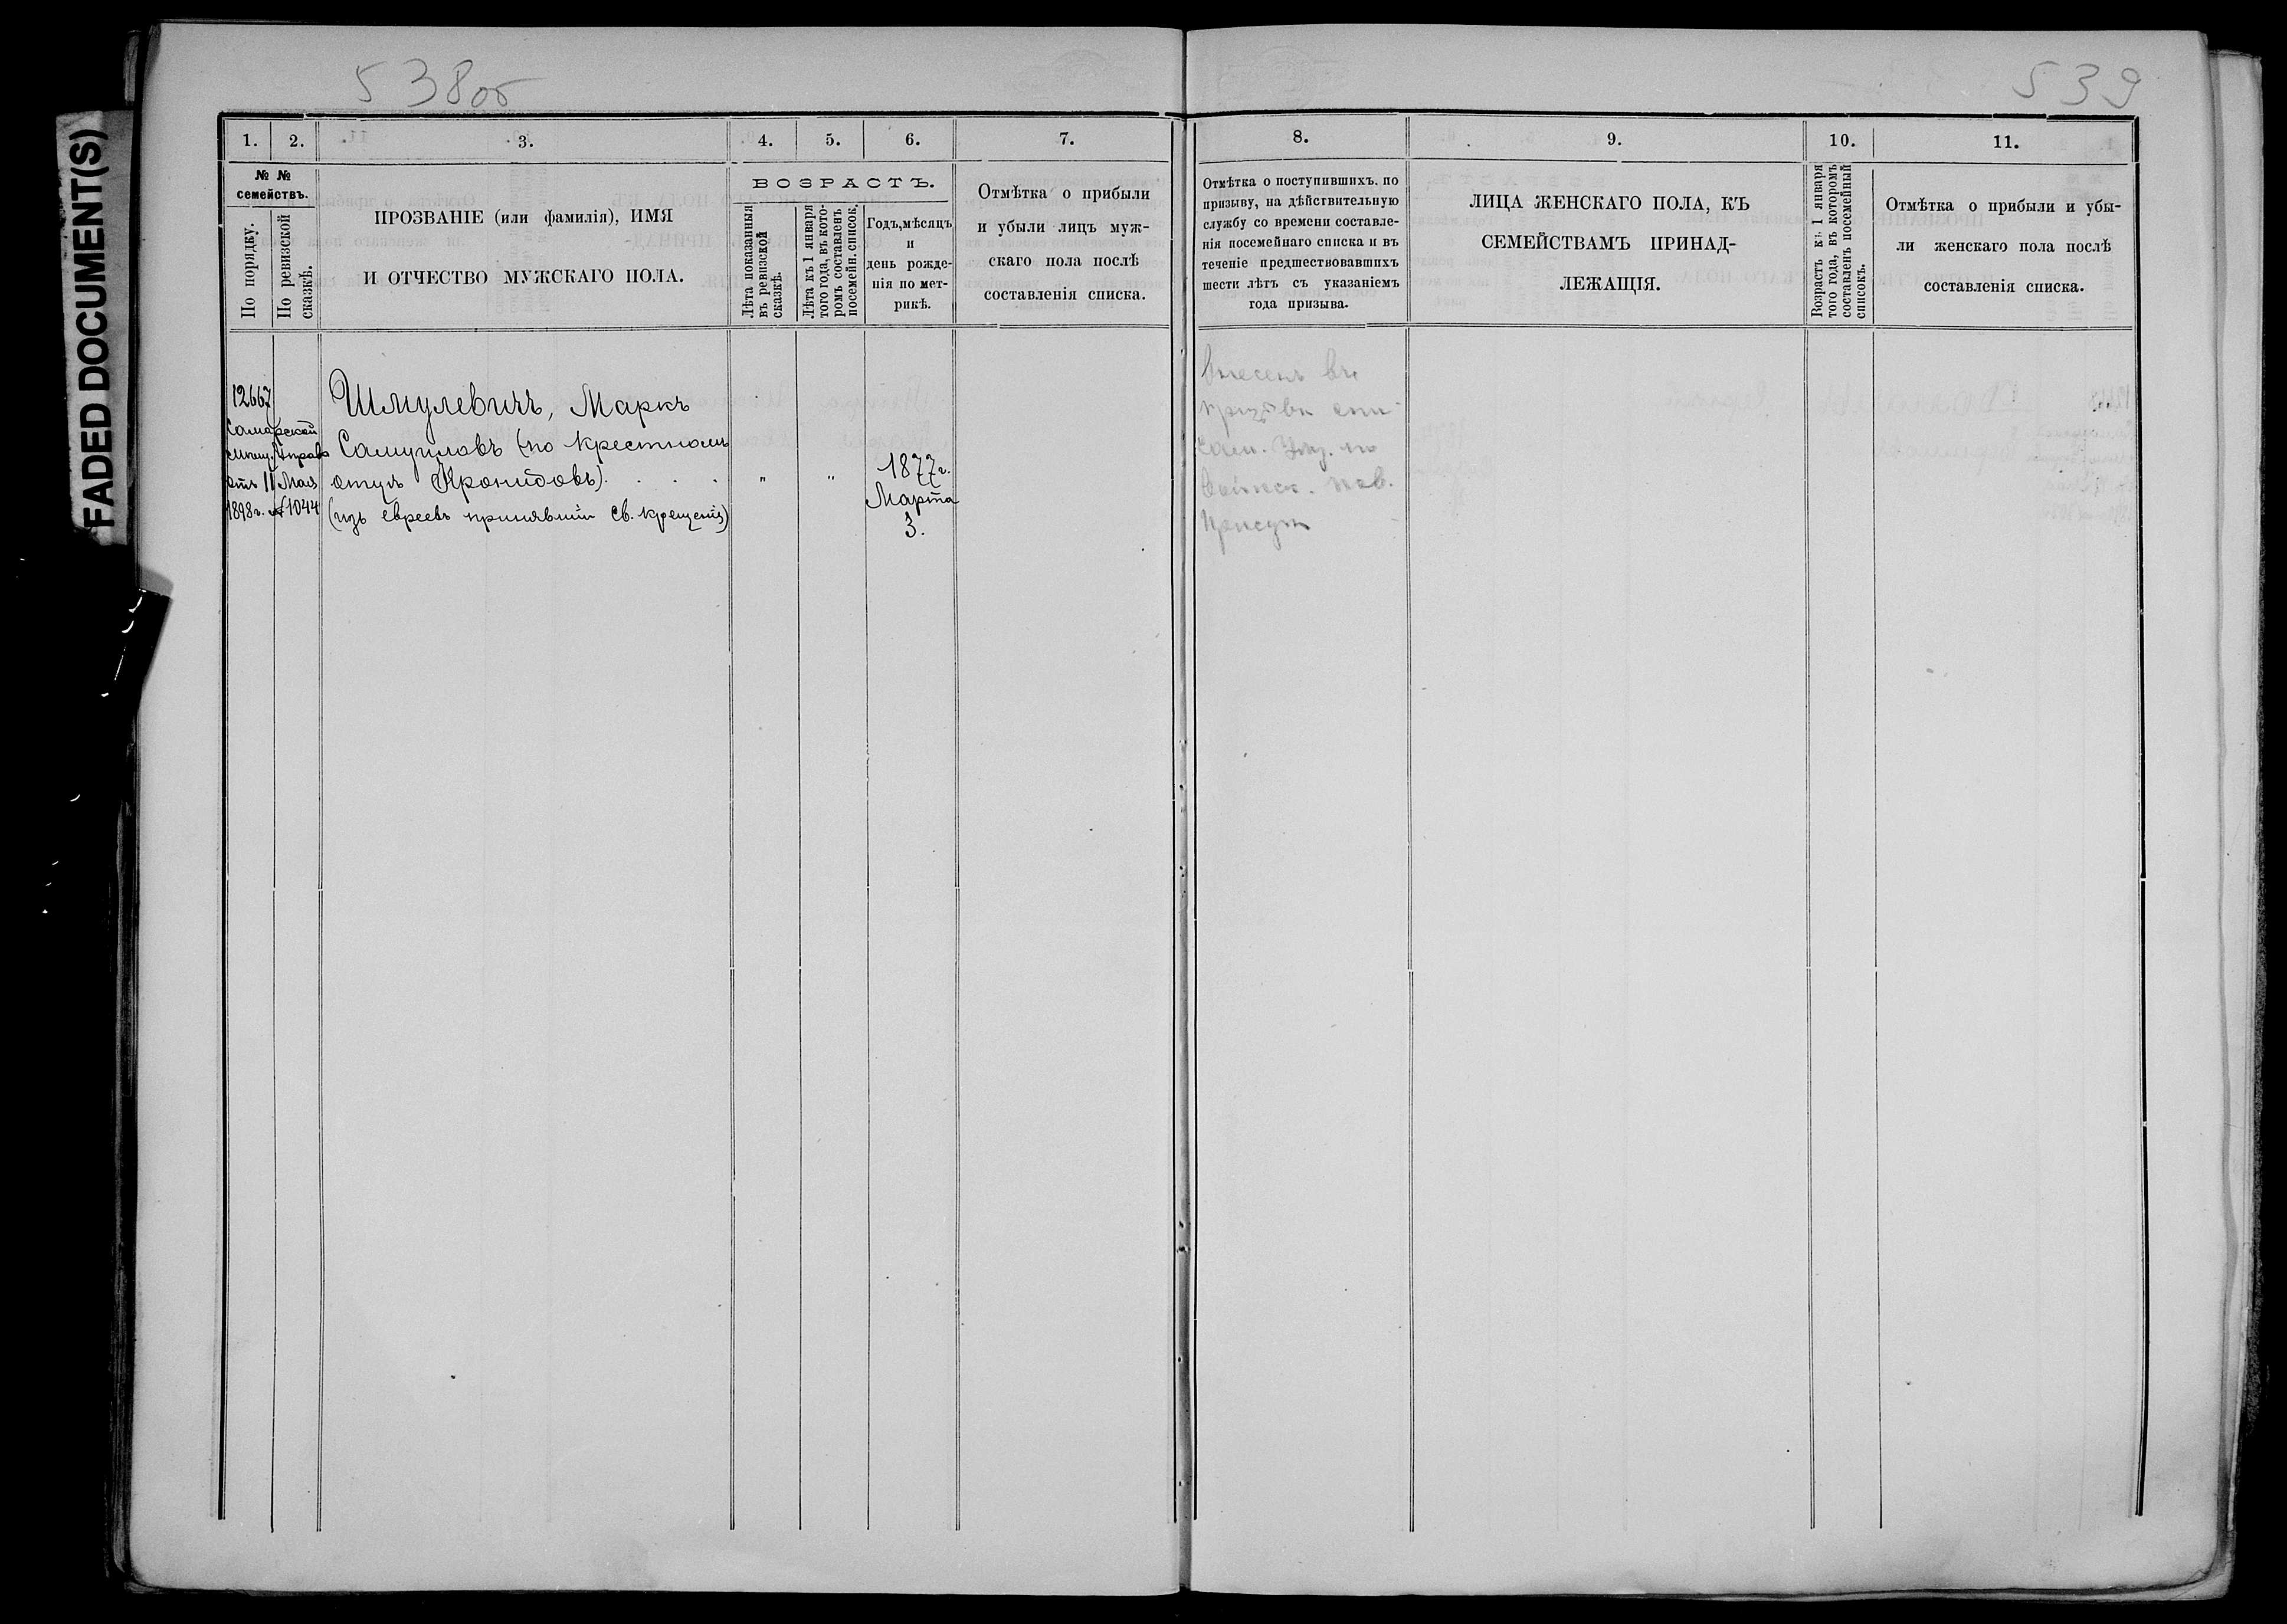 FADED DOCUMENT(S)
538об
539
1.
2.
3.
4.
5.
6.
7.
8.
9.
10.
11.
№ №
семействъ.
По порядку.
По ревизской
сказкѣ.
ПРОЗВАНІЕ (или фамилія), ИМЯ
И ОТЧЕСТВО МУЖСКАГО ПОЛА.
ВОЗРАСТЪ.
Лѣта показанныя
въ ревизской
сказкѣ.
Лѣта къ 1 января
того года, въ кото-
ромъ составленъ
посемейн. список.
Годъ, мѣсяцъ
и
день рожде-
нія по мет-
рикѣ.
Отмѣтка о прибыли
и убыли лицъ муж-
скаго пола послѣ
составленія списка.
Отмѣтка о поступившихъ, по
призыву, на дѣйствительную
службу со времени составле-
нія посемейнаго списка и въ
теченіе предшествовавшихъ
шести лѣтъ съ указаніемъ
года призыва.
ЛИЦА ЖЕНСКАГО ПОЛА, КЪ
СЕМЕЙСТВАМЪ ПРИНАД-
ЛЕЖАЩІЯ.
Возрастъ къ 1 января
того года, въ которомъ
составленъ посемейный
списокъ.
Отмѣтка о прибыли и убы-
ли женскаго пола послѣ
составленія списка.
12667
Самарской
Мѣщ. Управ
отъ 11 Мая
1898 г. № 1044
Шмулевичъ, Маркъ
Самуиловъ (по крестному
отцу Кронидовъ). . . .
(изъ евреевъ принявшій Св. крещеніе)
"
"
1877 г.
Марта
3.
Внесенъ въ
призывн спи-
воинск. пов.